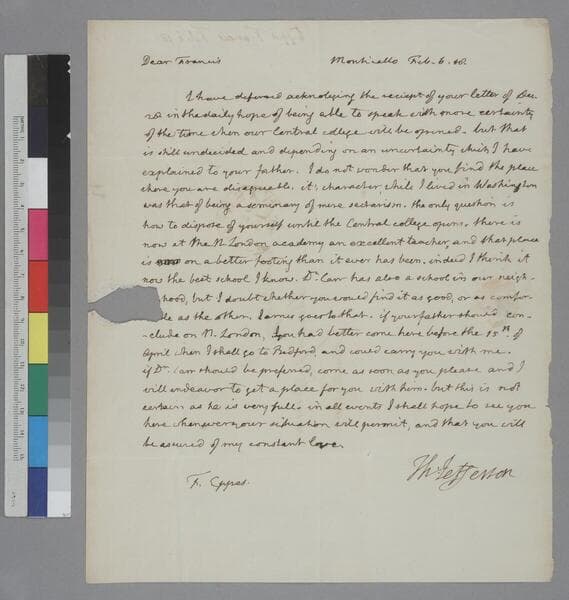 Dear Francis Monticello Feb. 6. 18.
I have deferred acknoleging the reciept of your letter of Dec.
28 in the daily hope of being able to speak with more certainty
of the time when our Central college will be opened. but that
is still undecided and depending on an uncertainty which I have
explained to your father. I do not wonder that you find the place
where you are disagreeable. it's character, while I lived in Washington
was that of being a seminary of mere sectarism. the only question is
how to dispose of yourself until the Central college opens. there is
now at the N. London academy an excellent teacher, and that place
is on a better footing than it ever has been. indeed I think it
now the best school I know. Dr. Carr has also a school in our neigh-
hood, but I doubt whether you would find it as good, or as comfor-
le as the other. James goes to that. if your father should con-
-clude on N. London, you had better come here before the 15th. of
April when I shall go to Bedford, and could carry you with me.
if Dr. Carr should be preferred, come as soon as you please and I
will endeavor to get a place for you with him. but this is not
certain as he is very full. in all events I shall hope to see you
here whenever your situation will permit, and that you will
be assured of my constant love.
Th: Jefferson
F. Eppes.